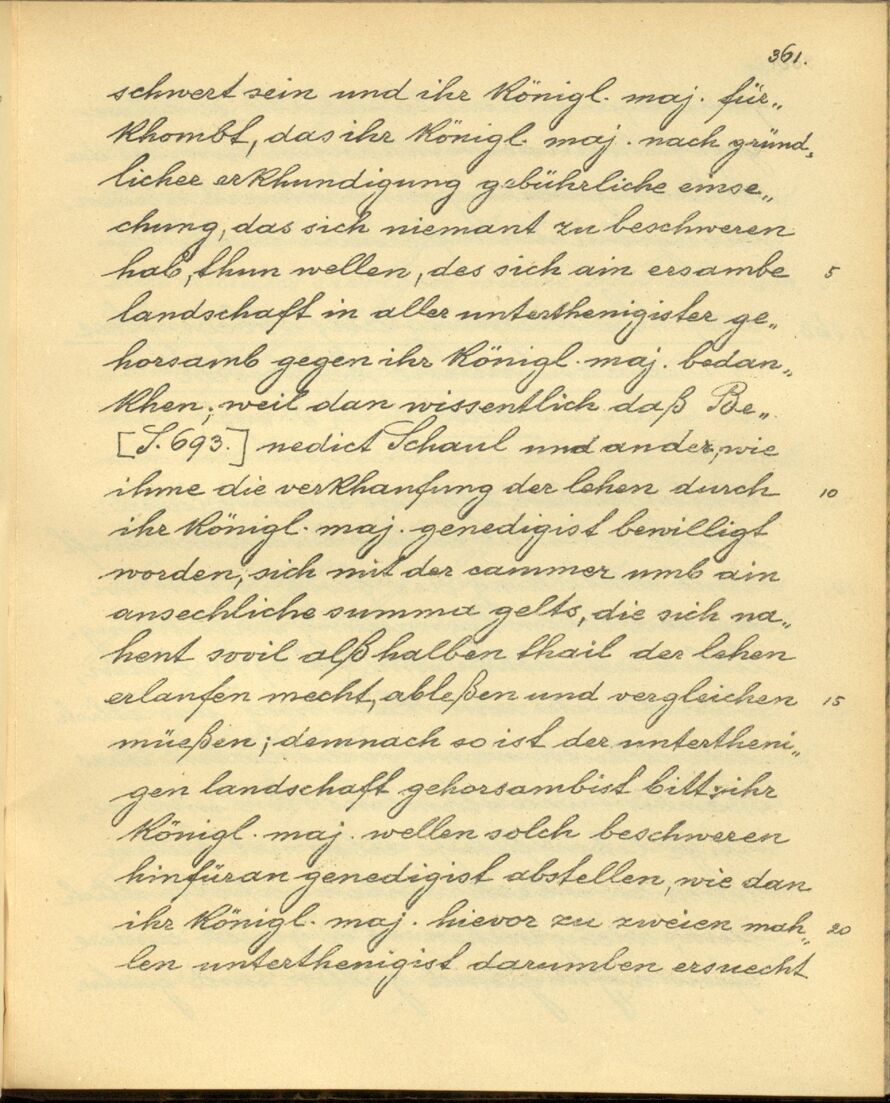 361.
schwert sein und ihr Königl. maj. für„
khombt, das ihr Königl. maj. nach gründ„
licher erkhundigung gebührliche einse„
chung, das sich niemant zu beschweren
hab, thun wellen, des sich ain ersambe 5
landschaft in aller unterthenigister ge„
horsamb gegen ihr Königl. maj. bedan„
khen; weil dan wissentlich daß Be„
[S. 693.] nedict Schaul und ander, wie
ihme die verkhaufung der lehen durch 10
ihr Königl. maj. genedigist bewilligt
worden, sich mit der cammer umb ain
ansechliche summa gelts, die sich na„
hent sovil alß halben thail der lehen
erlaufen mecht, ableßen und vergleichen 15
müeßen; demnach so ist der untertheni„
gen landschaft gehorsambist bitt: ihr
Königl. maj. wellen solch beschweren
hinfüran genedigist abstellen, wie dan
ihr Königl. maj. hievor zu zweien mah„ 20
len unterthenigist darumben ersuecht